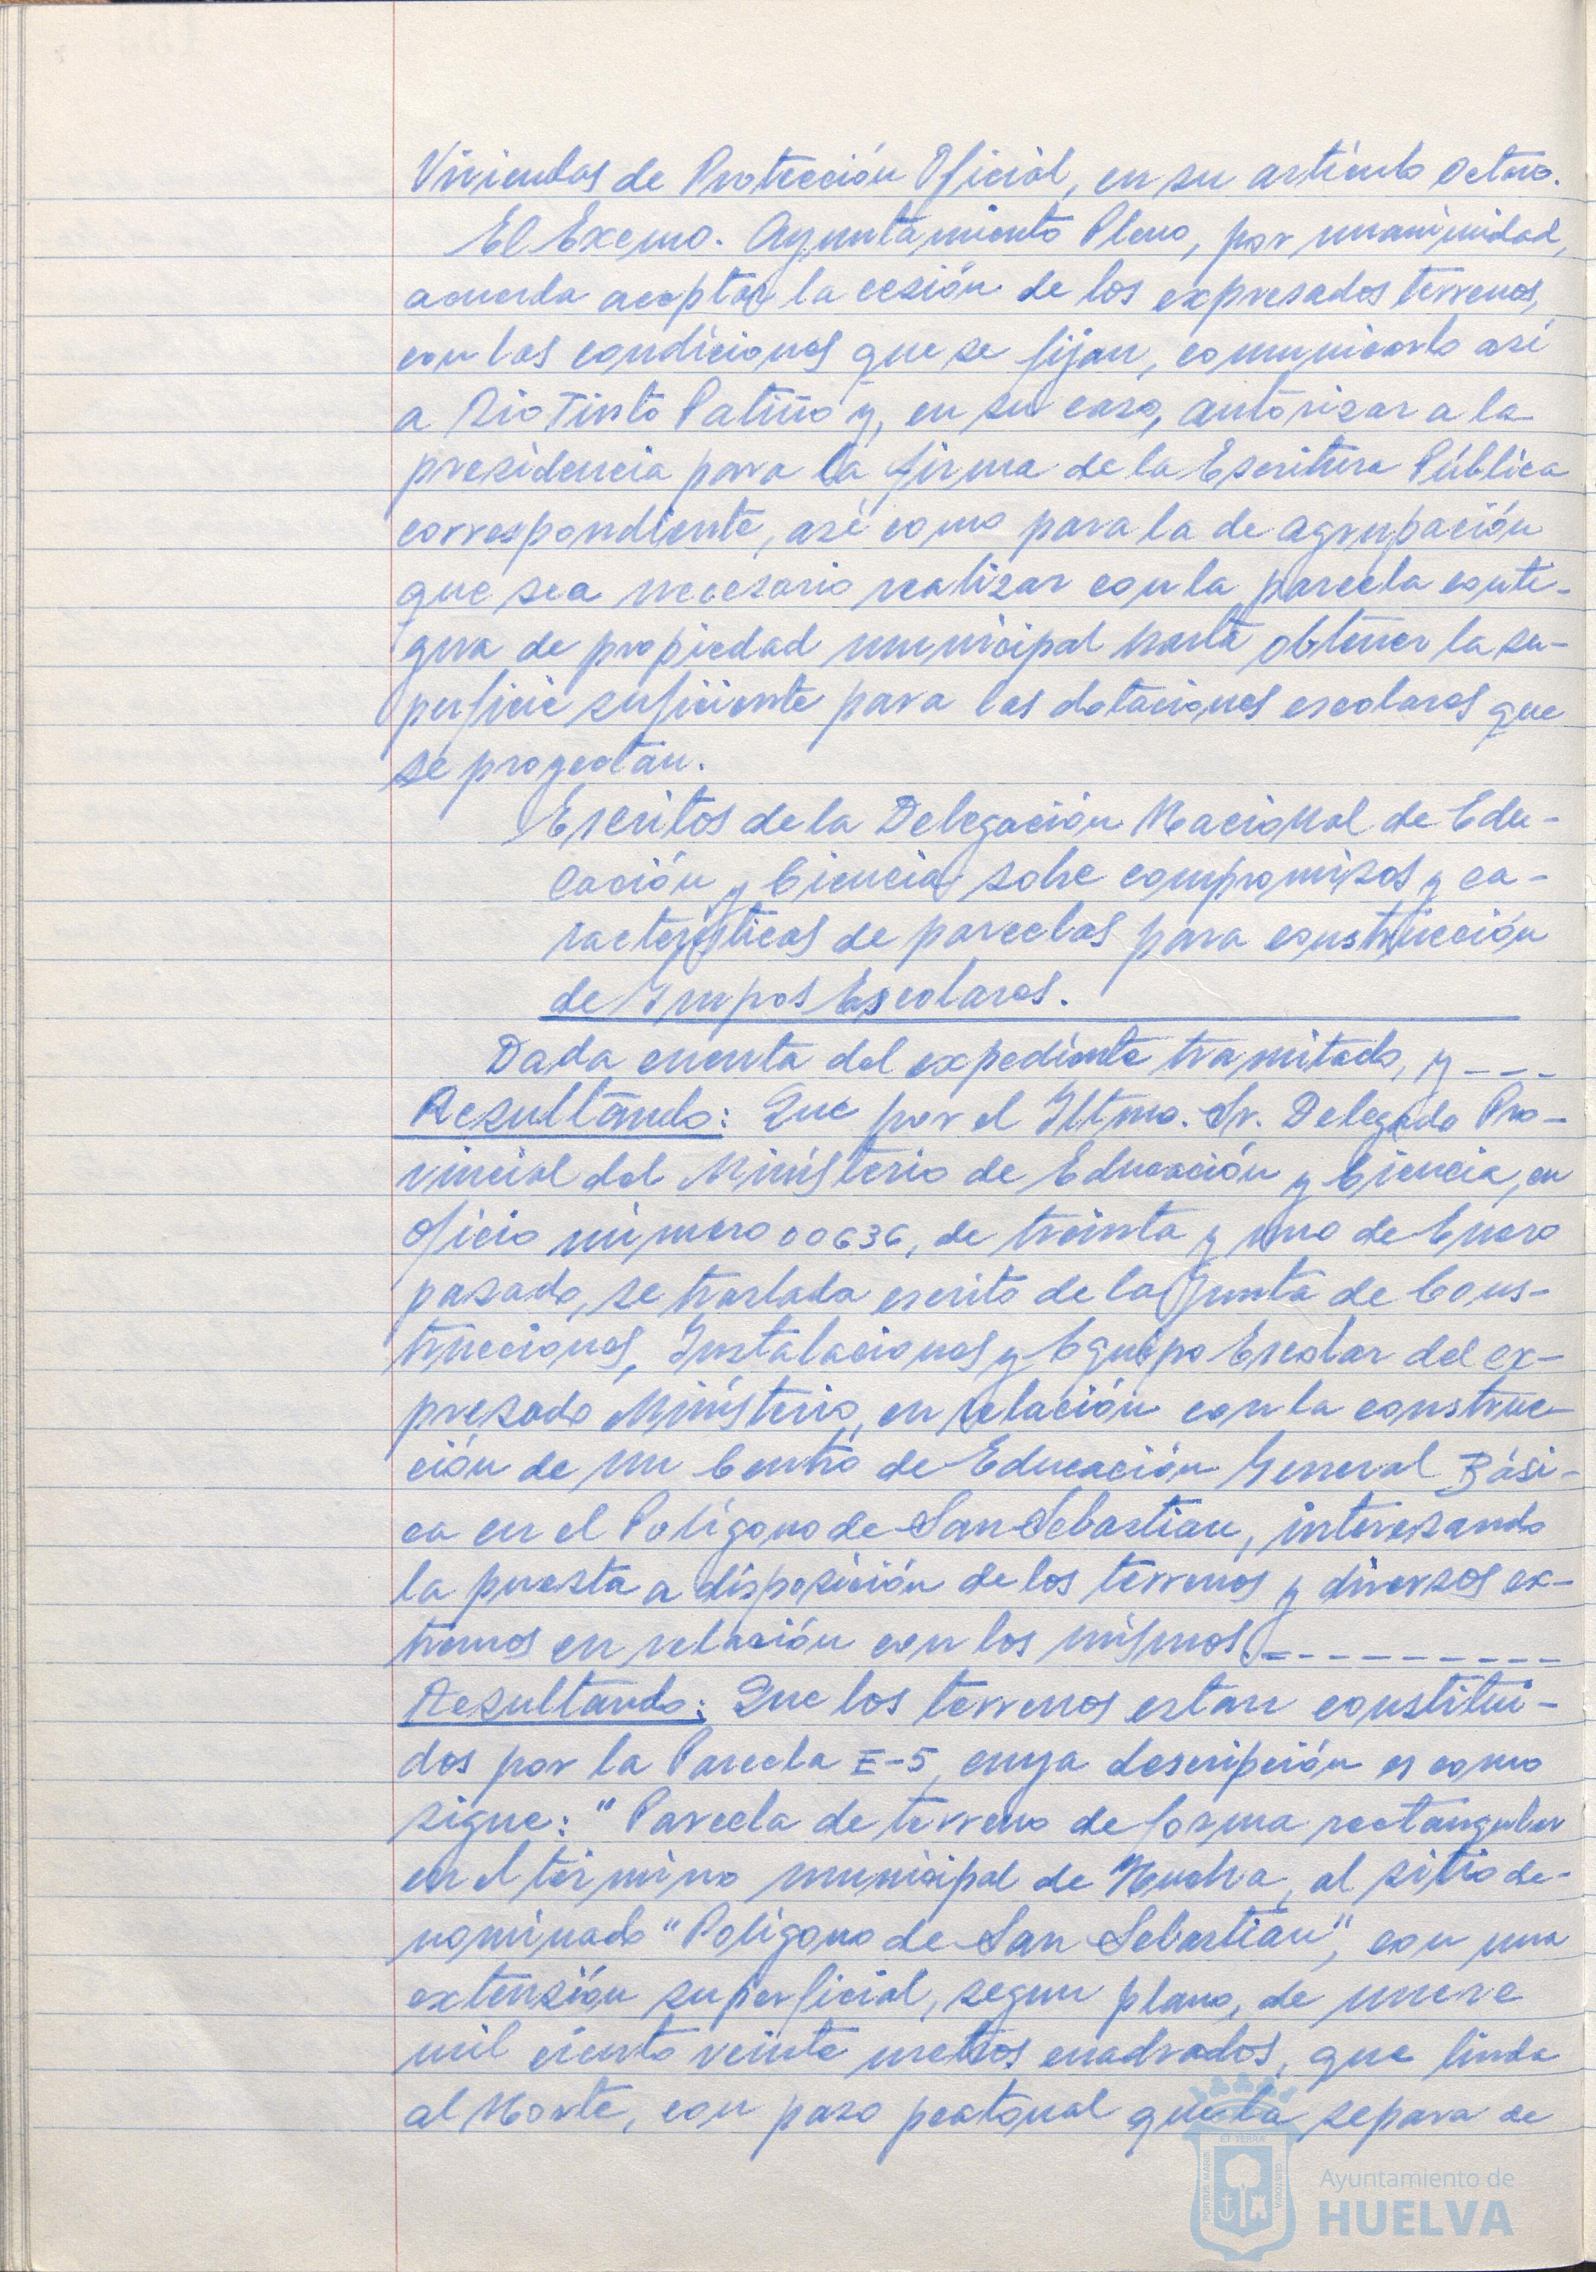 Viviendas de Protección Oficial, en su artículo octavo.
El Excmo. Ayuntamiento Pleno, por unanimidad,
acuerda aceptar la cesión de los expresados terrenos,
con las condiciones que se fijan, comunicarlo así
a Rio Tinto Patiño y, en su caso, autorizar a la
presidencia para la firma de la Escritura Pública
correspondiente, así como para la de agrupación
que sea necesario realizar con la parcela conti-
gua de propiedad municipal hasta obtener la su-
perficie suficiente para las dotaciones escolares que
se proyectan.
Escritos de la Delegación Nacional de Edu-
cación y Ciencia, sobre compromisos y ca-
racterísticas de parcelas para construcción
de Grupos Escolares.
Dada cuenta del expediente tramitado, y ---
Resultando: Que por el Iltmo. Sr. Delegado Pro-
vincial del Ministerio de Educación y Ciencia, en
oficio número 00636, de treinta y uno de Enero
pasado, se traslada escrito de la Junta de Cons-
trucciones, Instalaciones y Equipo Escolar del ex-
presado Ministerio, en relación con la construc-
ción de un Centro de Educación General Bási-
ca en el Polígono de San Sebastian, interesando
la puesta a disposición de los terrenos y diversos ex-
tremos en relación con los mismos. ---------
Resultando: Que los terrenos estan constitui-
dos por la Parcela E-5, cuya descripción es como
sigue: "Parcela de terreno de forma rectangular
en el término municipal de Huelva, al sitio de-
nominado "Polígono de San Sebastian", con una
extensión superficial, segun plano, de nueve
mil ciento veinte metros cuadrados, que linda
al Norte, con paso peatonal que la separa de
PORTUS MARIS
ET TERRAE
CUSTODIA
Ayuntamiento de
HUELVA